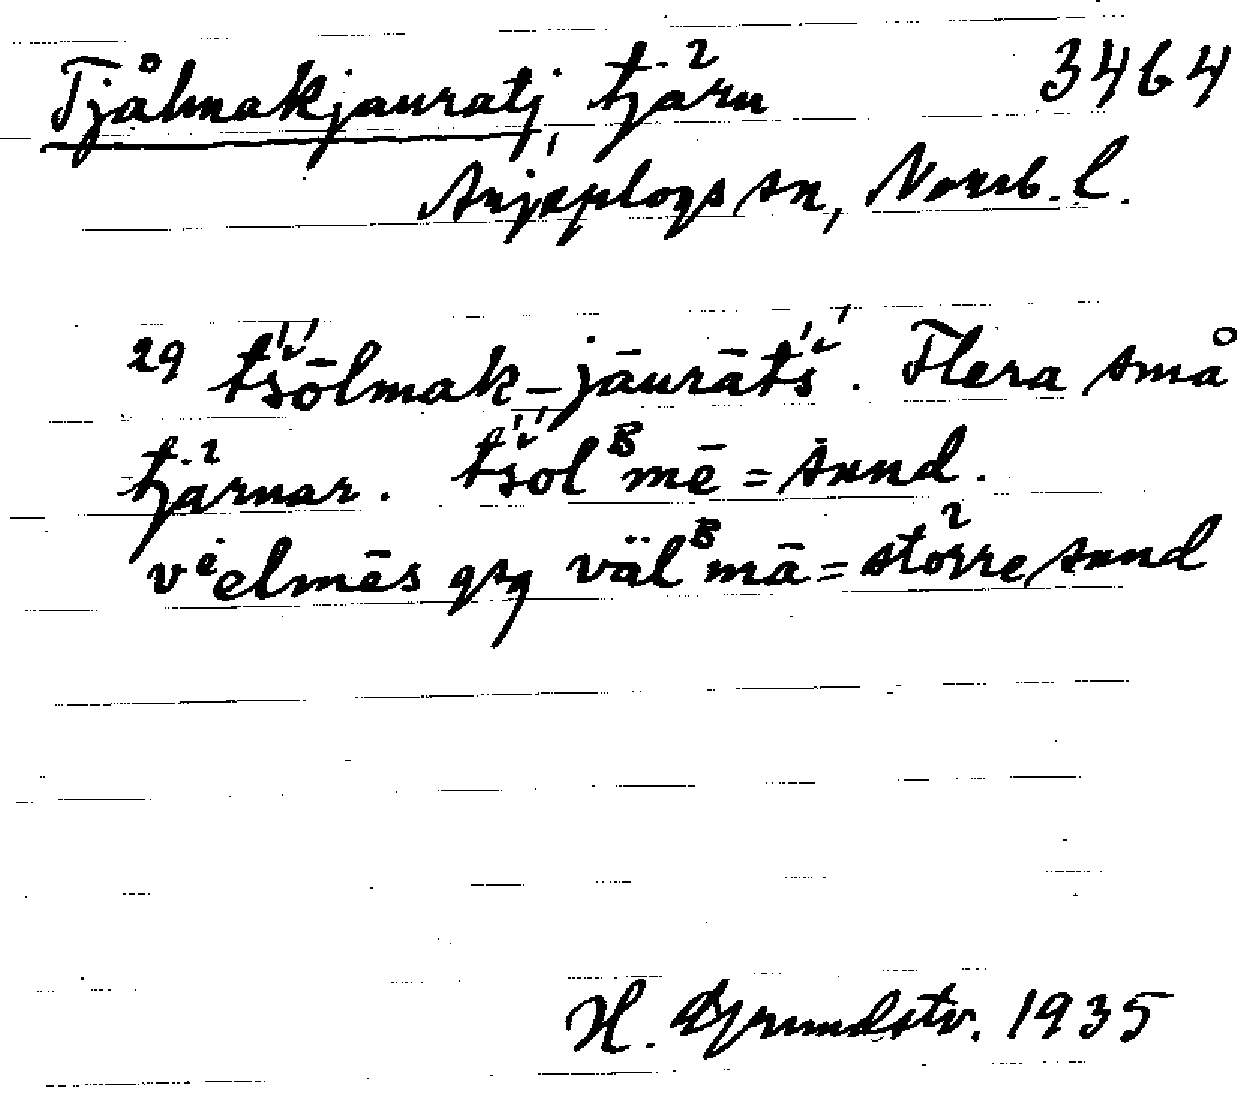 Tjålmakjauratj, tjärn 3464
Arjeplogs sn, Norrb. l.
29 t́š́ōlmak-jāurāt́š́. Flera små
tjärnar. t́š́olᴮmē = sund.
vėelmēs gsg välᴮmā = större sund
H. Grundstr. 1935